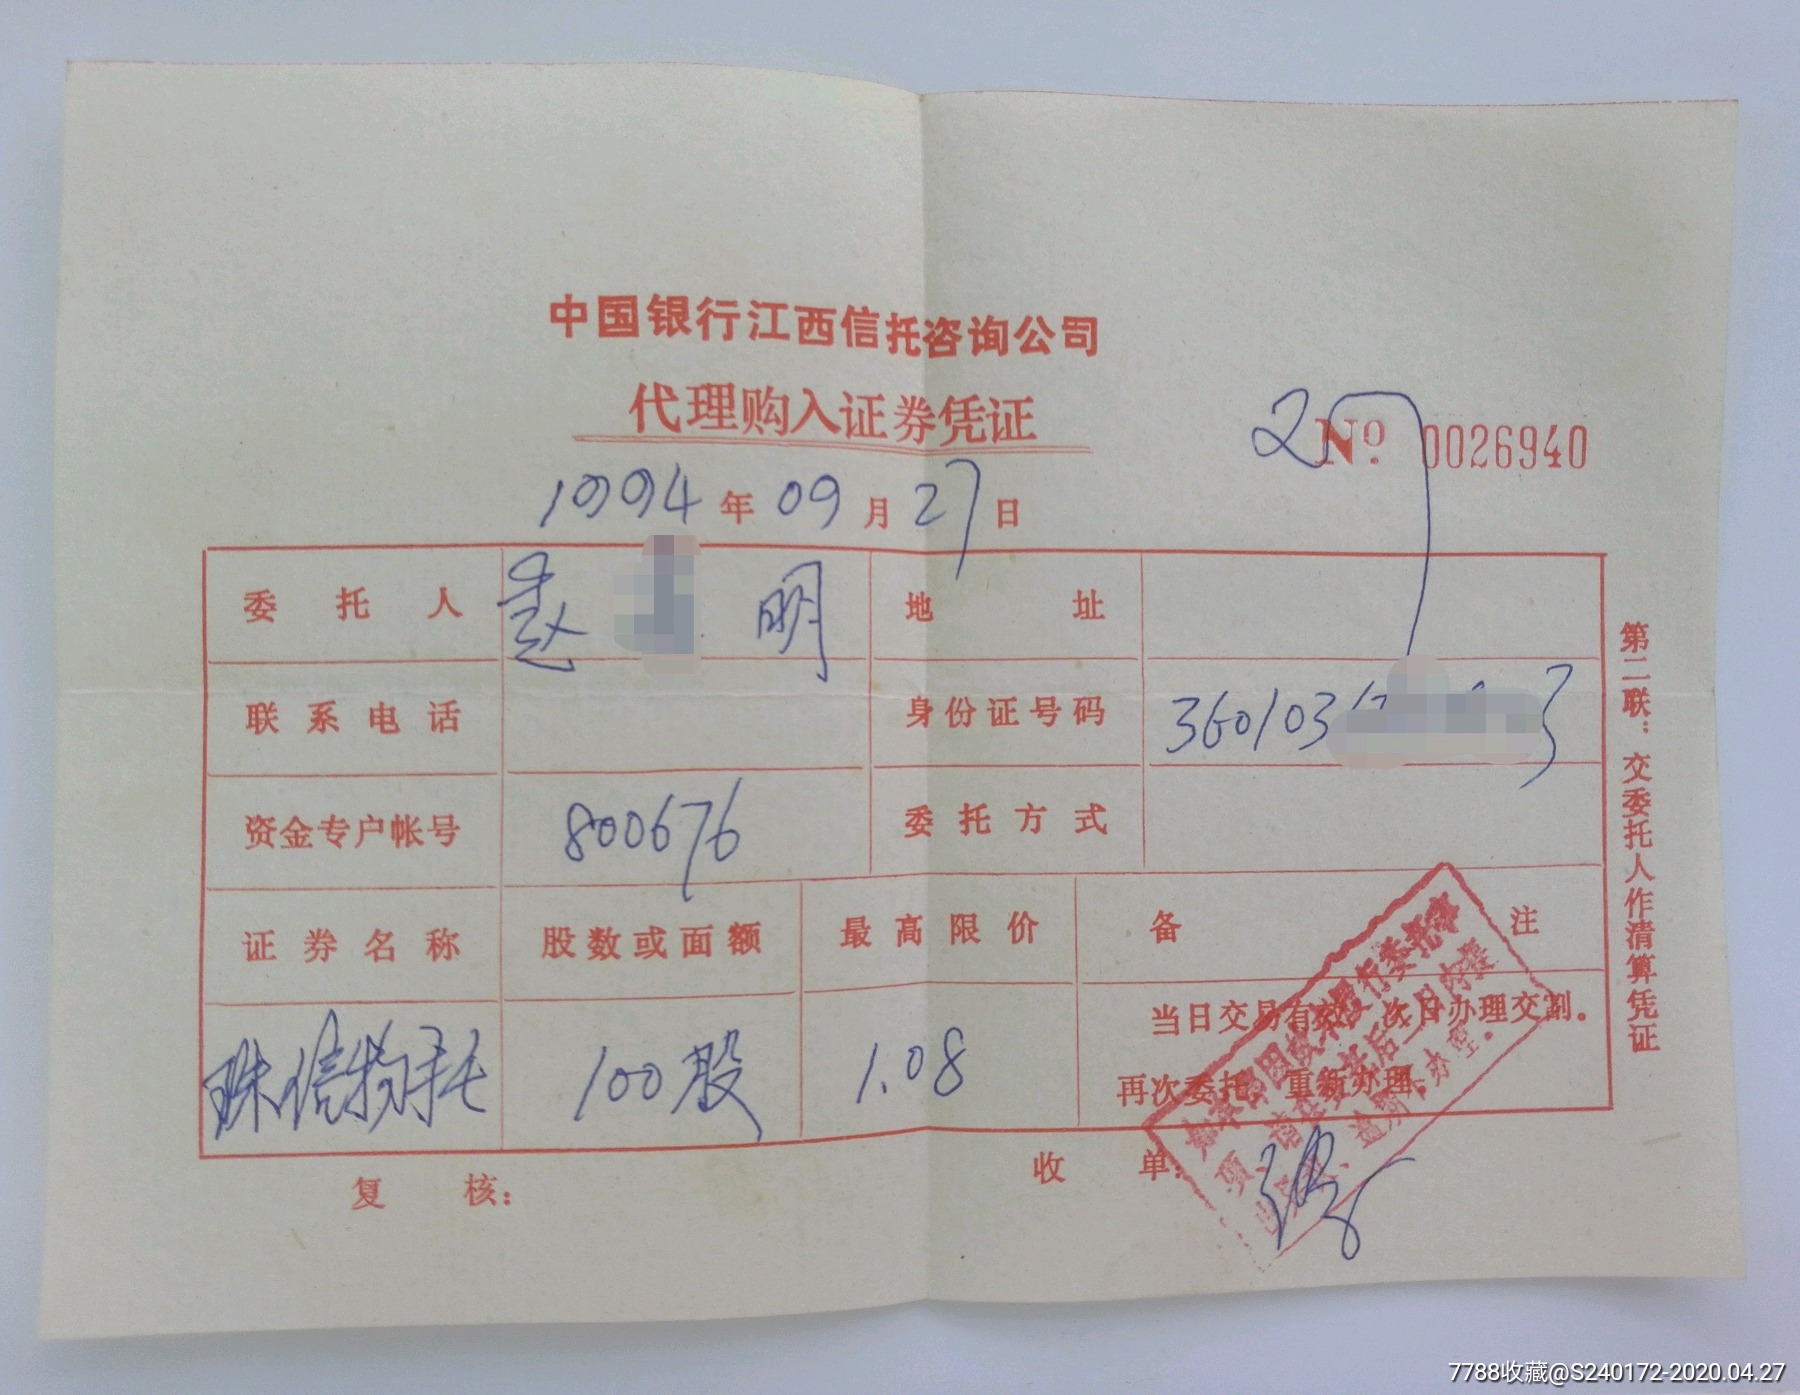 中国银行江西信托咨询公司
代理购入证券凭证
27 No 0026940
1994年09月27日
委托人 赵 明 地址
联系电话 身份证号码 360103 3
资金专户帐号 800676 委托方式
证券名称 股数或面额 最高限价 备注
珠信物托 100股 1.08 当日交易有效，次日办理交割。
再次委托，重新办理。
复核： 收单：
第二联：交委托人作清算凭证
7788收藏@S240172-2020.04.27